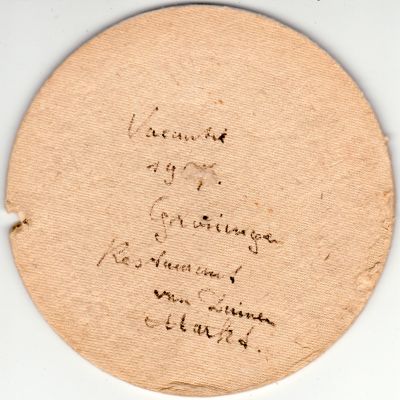 Vacantie
19
Groningen
Restaurant
van
Markt.